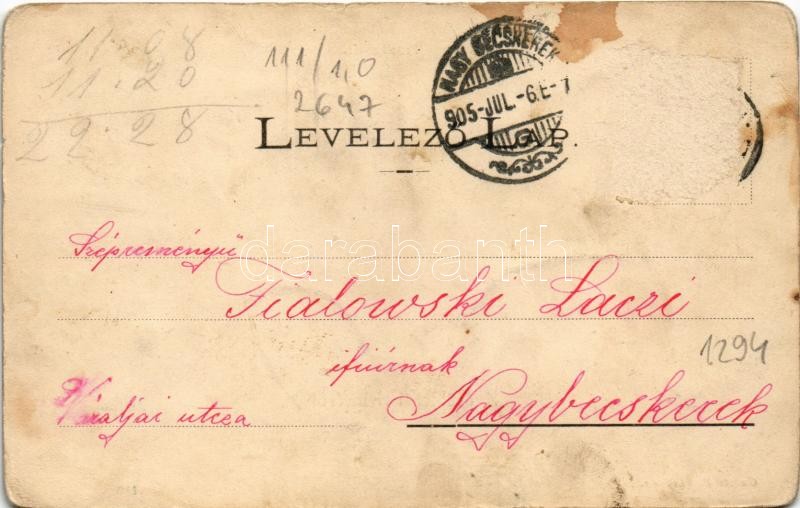 11·08
11·20
22·28
111/1,0
2647
NAGY BECSKEREK
905-JUL.-6.E-7
LEVELEZŐ LAP.
darabanth
Szépreményű
Fialowski Laczi
ifiúrnak
1294
Váraljai utcza
Nagybecskerek